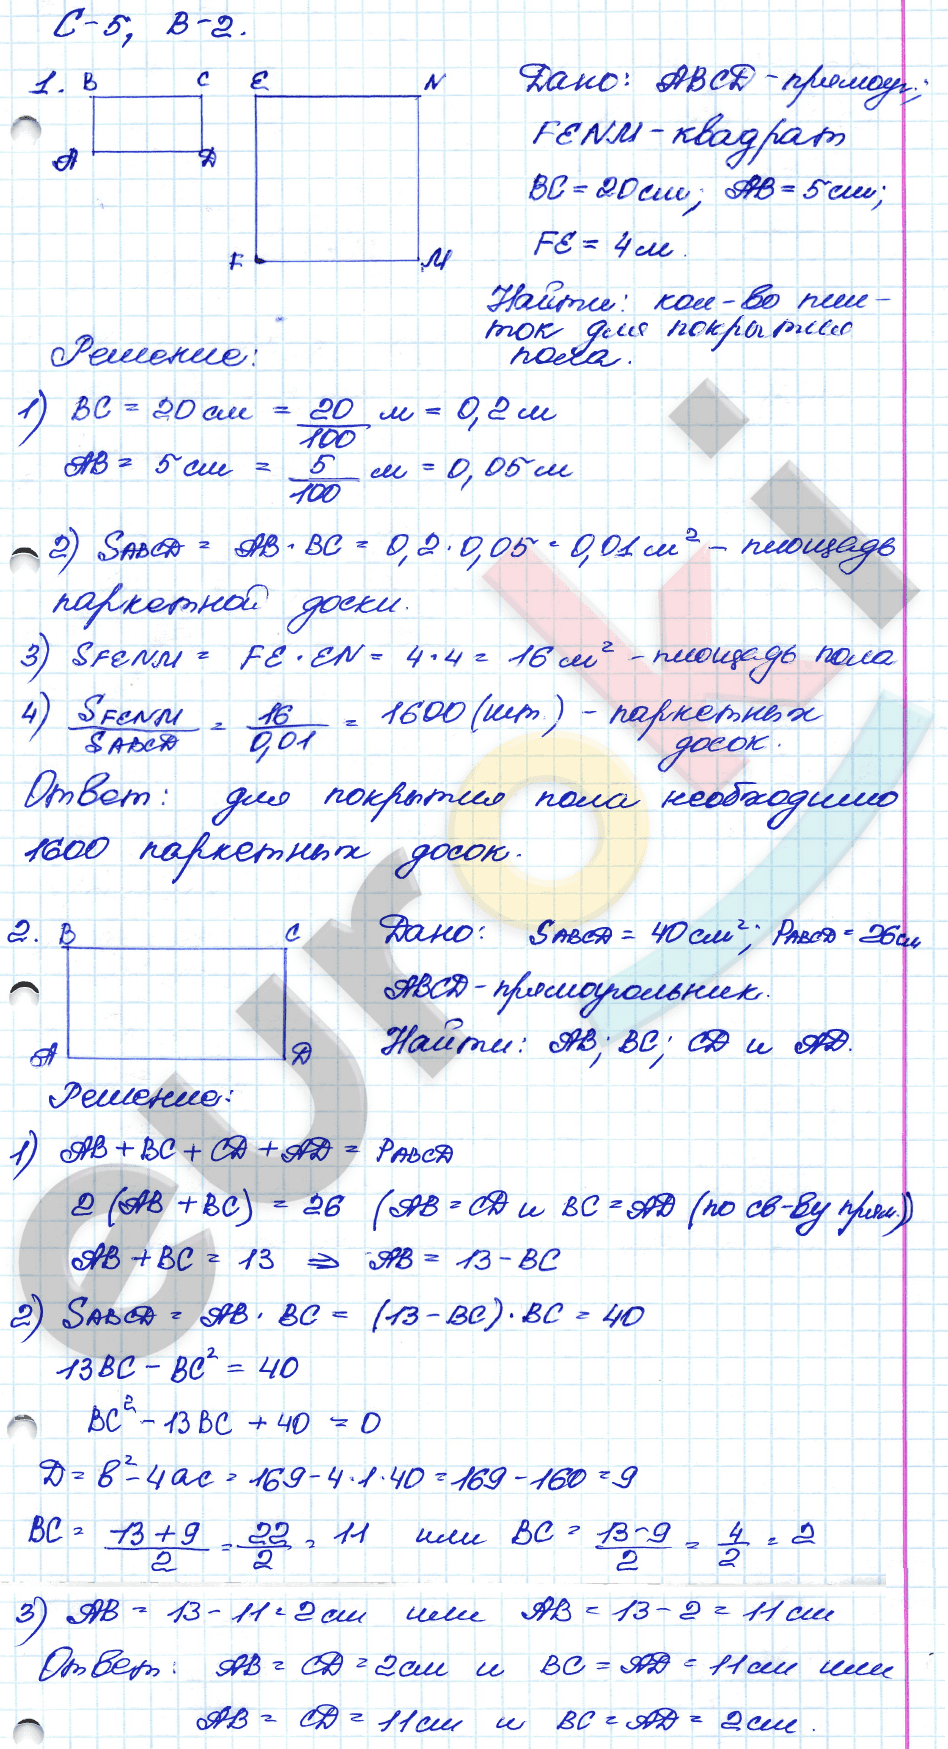 С-5, В-2.
1. B C E N
A D F M
Дано: ABCD - прямоуг.;
FENM - квадрат
BC = 20 см; AB = 5 см;
FE = 4 м.
Найти: кол-во плит-
ток для покрытия
пола.
Решение:
1) BC = 20 см = 20/100 м = 0,2 м
AB = 5 см = 5/100 м = 0,05 м
2) SABCD = AB · BC = 0,2 · 0,05 = 0,01 м² - площадь
паркетной доски.
3) SFENM = FE · EN = 4 · 4 = 16 м² - площадь пола
4) SFENM/SABCD = 16/0,01 = 1600 (шт.) - паркетных
досок.
Ответ: для покрытия пола необходимо
1600 паркетных досок.
2. B C
A D
Дано: SABCD = 40 см²; PABCD = 26 см
ABCD - прямоугольник.
Найти: AB; BC; CD и AD.
Решение:
1) AB + BC + CD + AD = PABCD
2 (AB + BC) = 26 (AB = CD и BC = AD (по св-ву прям.))
AB + BC = 13 ⇒ AB = 13 - BC
2) SABCD = AB · BC = (13 - BC) · BC = 40
13BC - BC² = 40
BC² - 13BC + 40 = 0
D = b² - 4ac = 169 - 4 · 1 · 40 = 169 - 160 = 9
BC = 13 + 9/2 = 22/2 = 11 или BC = 13 - 9/2 = 4/2 = 2
3) AB = 13 - 11 = 2 см или AB = 13 - 2 = 11 см
Ответ: AB = CD = 2 см и BC = AD = 11 см или
AB = CD = 11 см и BC = AD = 2 см.
euroki